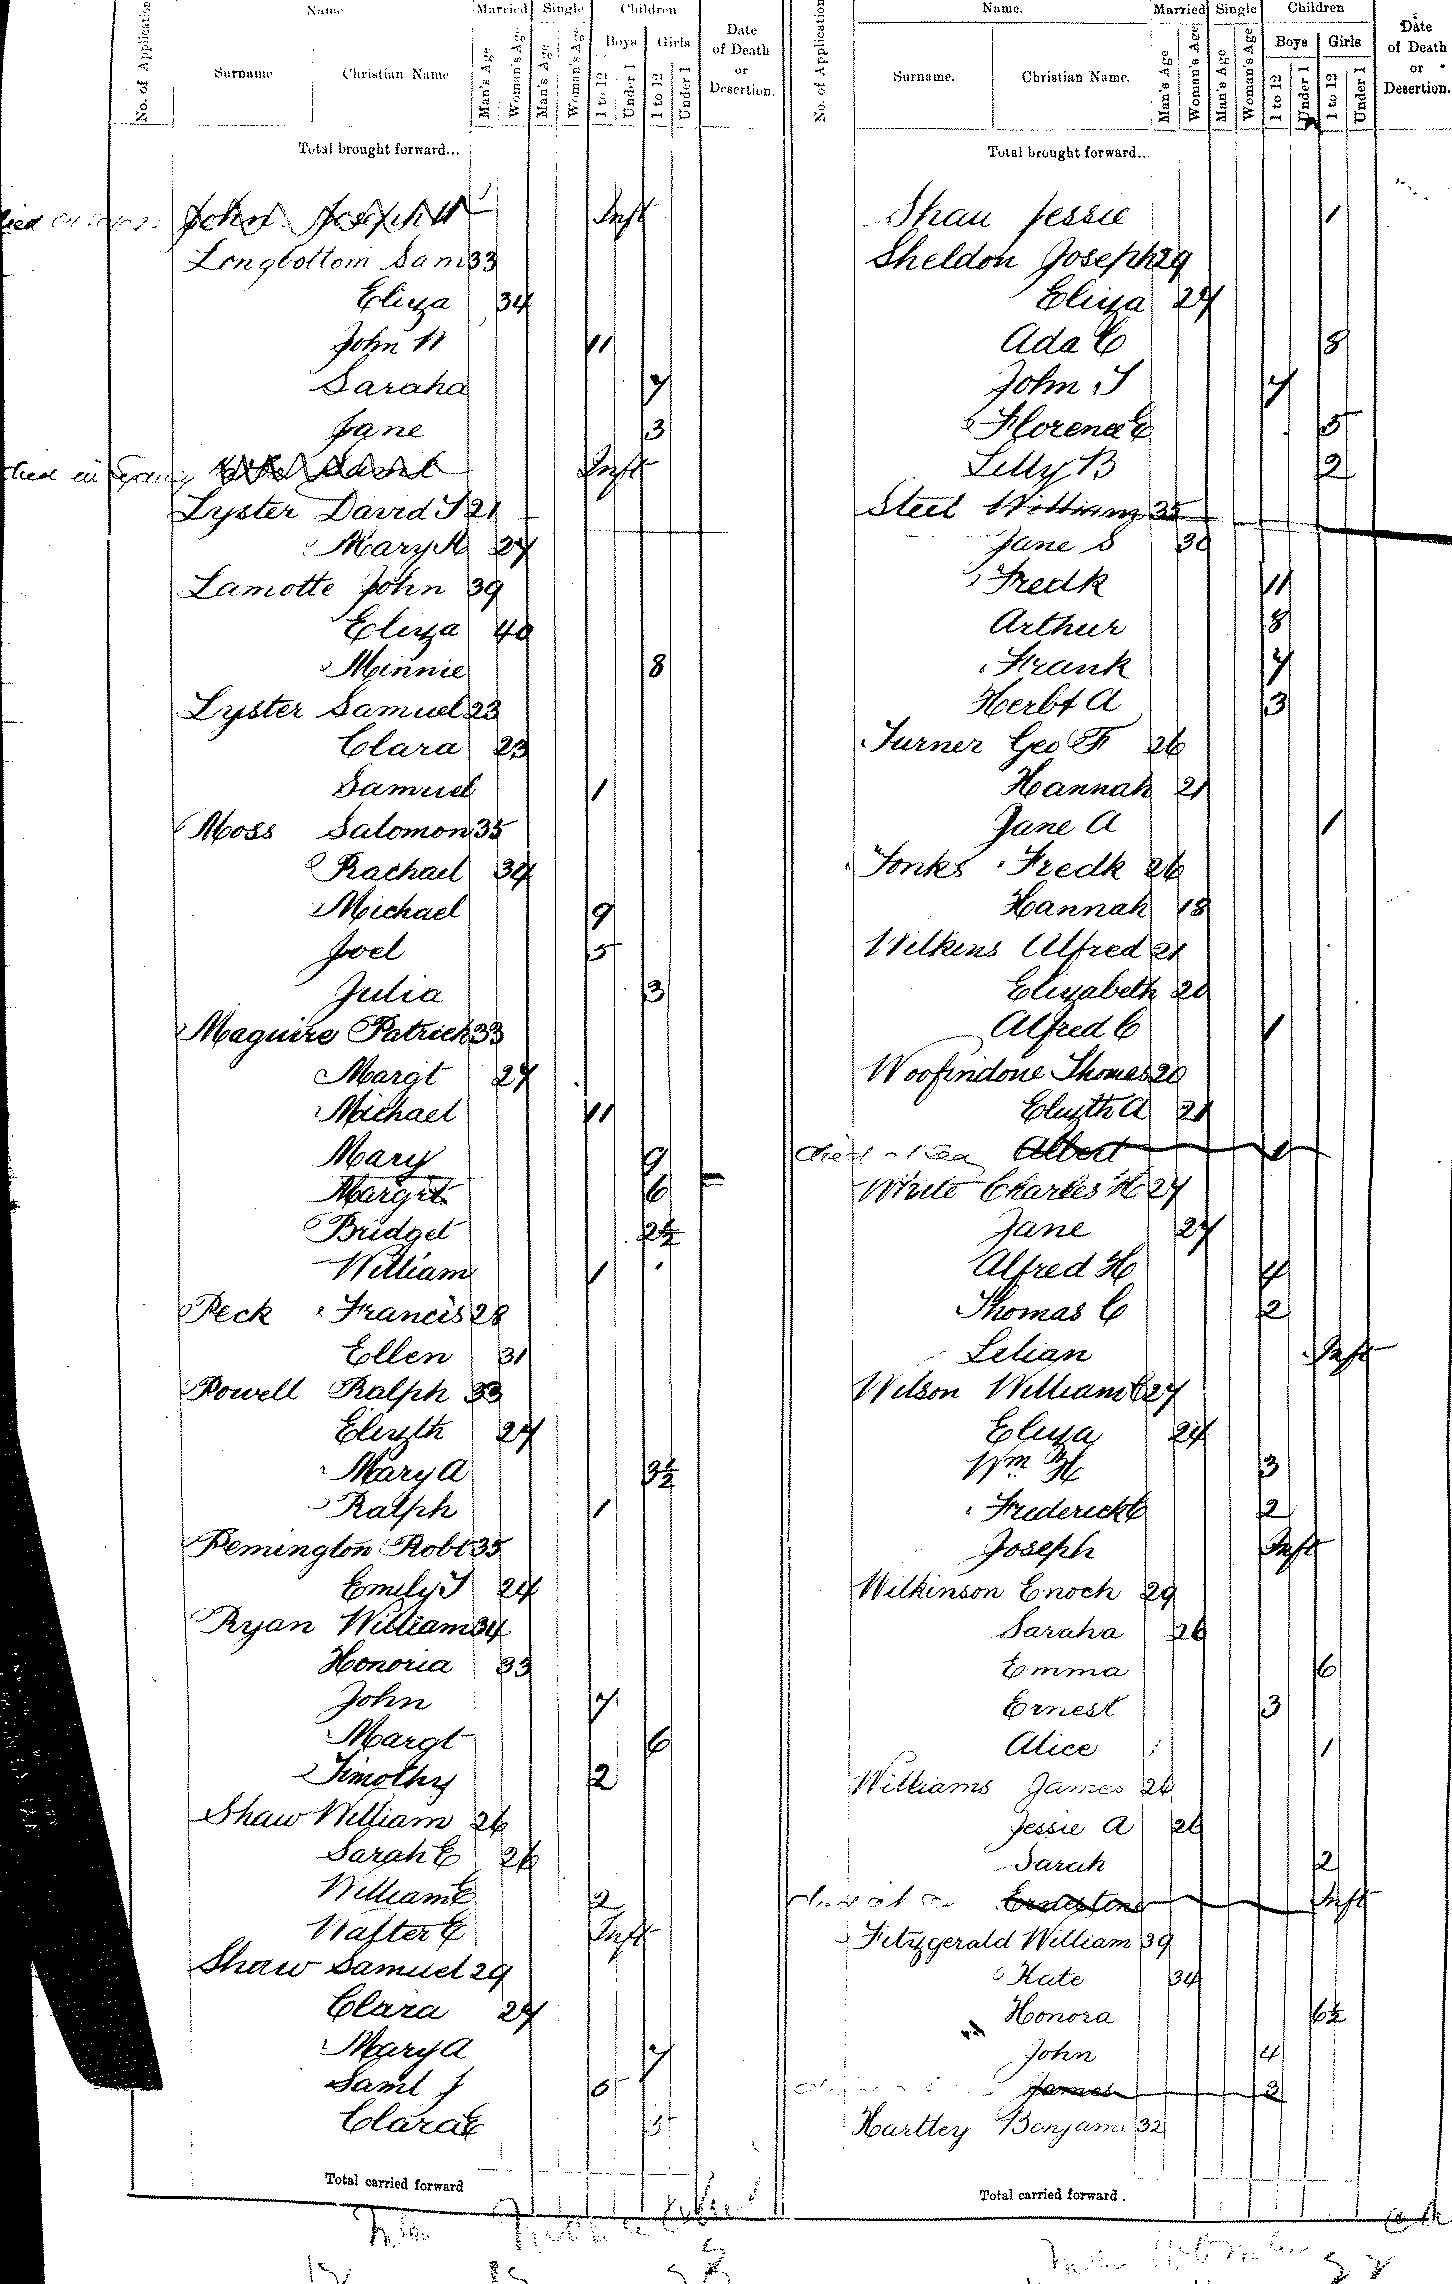 No. of Application
Name
Married Single Children
Surname Christian Name
Man's Age Woman's Age Man's Age Woman's Age
Boys Girls
1 to 12 Under 1 1 to 12 Under 1
Date of Death or Desertion.
Total brought forward...
John Joseph W Inft
Longbottom Sam 33
Eliza 34
John W 11
Saraha 7
Jane 3
died in Inft
Lyster David J 21
Mary A 27
Lamotte John 39
Eliza 40
Minnie 8
Lyster Samuel 23
Clara 23
Samuel 1
Moss Salomon 35
Rachael 34
Michael 9
Joel 5
Julia 3
Maguire Patrick 33
Margt 27
Michael 11
Mary 9
Margrt 6
Bridget 2½
William 1
Peck Francis 28
Ellen 31
Powell Ralph 33
Elizth 27
Mary A 3½
Ralph 1
Remington Robt 35
Emily J 24
Ryan William 34
Honoria 33
John 7
Margt 6
Timothy 2
Shaw William 26
Sarah E 26
William E 2
Walter E Inft
Shaw Samuel 29
Clara 27
Mary A 7
Saml J 5
Clara E 3
Total carried forward
No. of Application
Name.
Married Single Children
Surname. Christian Name.
Man's Age Woman's Age Man's Age Woman's Age
Boys Girls
1 to 12 Under 1 1 to 12 Under 1
Date of Death or Desertion.
Total brought forward...
Shau Jessie 1
Sheldon Joseph 29
Eliza 27
Ada C 8
John J 7
Florence E 5
Lilly B 2
Steel William 35
Jane S 30
Fredk 11
Arthur 8
Frank 7
Herbt A 3
Turner Geo F 26
Hannah 21
Jane A 1
Tonks Fredk 26
Hannah 18
Wilkins Alfred 21
Elizabeth 20
Alfred C 1
Woofindone Thomas 20
Elizth A 21
died Albert 1
White Charles H 27
Jane 27
Alfred H 4
Thomas C 2
Lilian Inft
Wilson William C 27
Eliza 24
Wm H 3
Frederick C 2
Joseph Inft
Wilkinson Enoch 29
Saraha 26
Emma 6
Ernest 3
Alice 1
Williams James 26
Jessie A 26
Sarah 2
Inft
Fitzgerald William 39
Kate 34
Honora 6½
John 4
James 2
Hartley Benjam 32
Total carried forward.